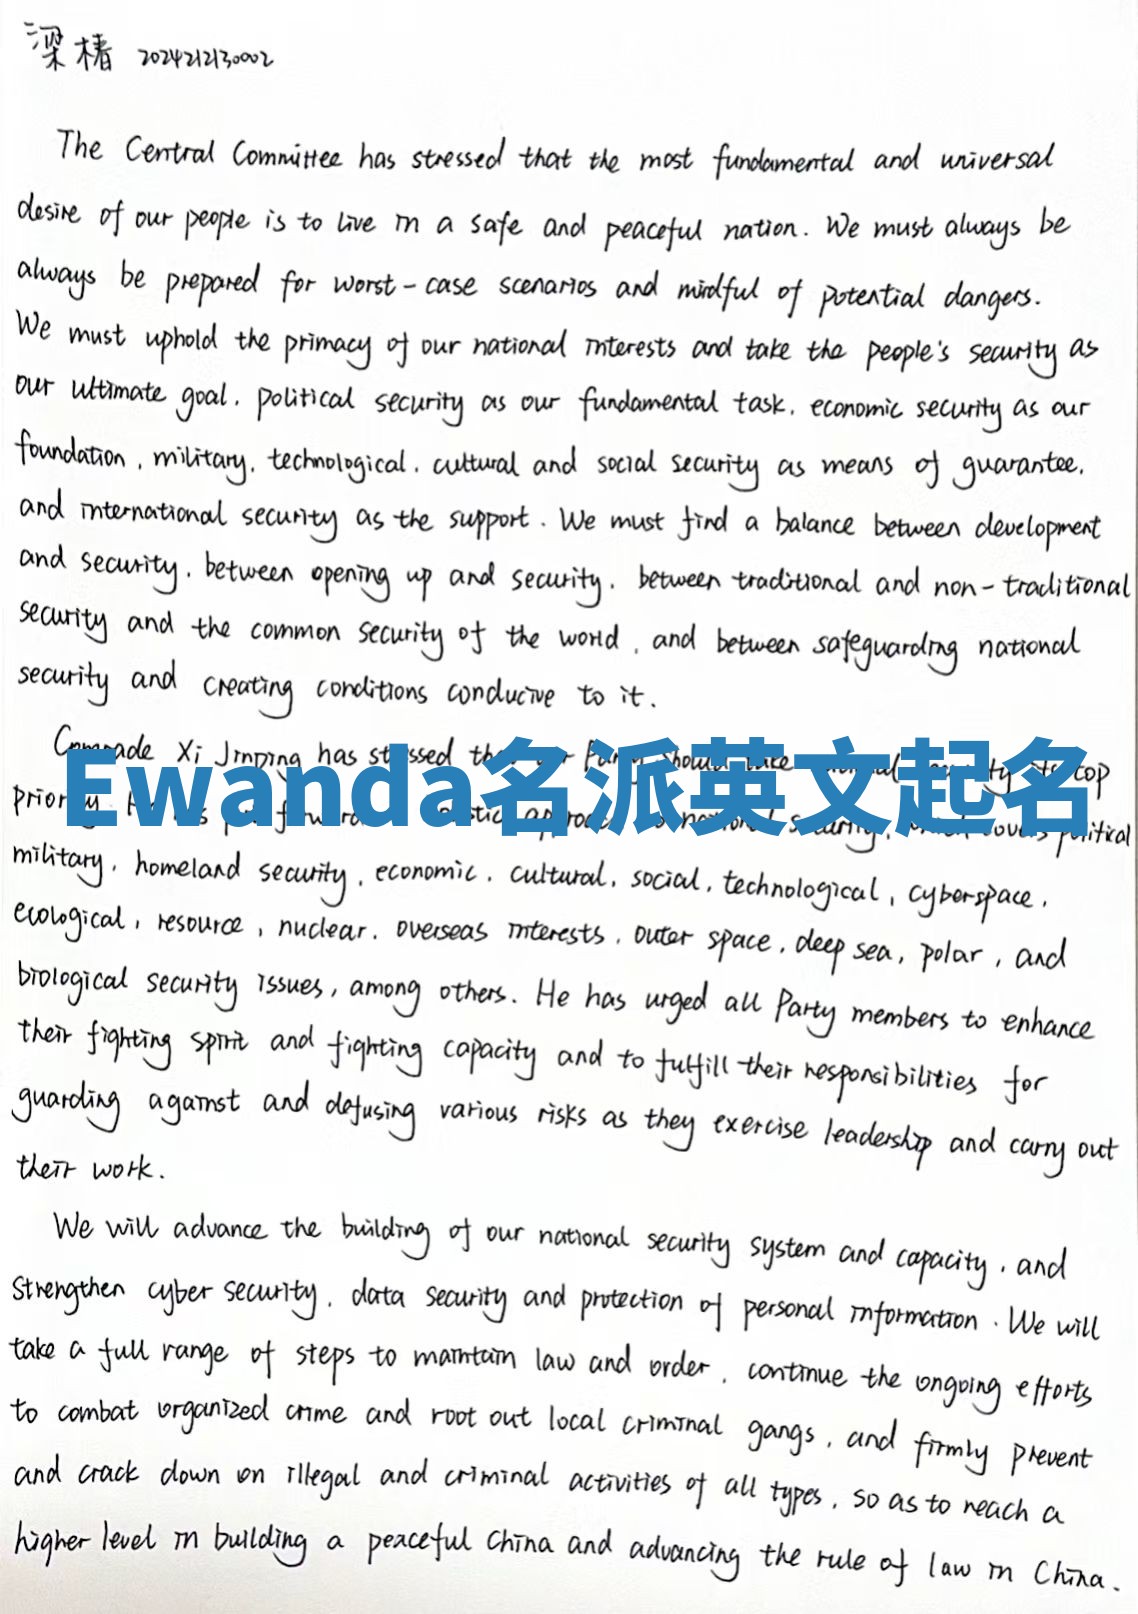 梁椿 2024212130002
The Central Committee has stressed that the most fundamental and universal
desire of our people is to live in a safe and peaceful nation. We must always be
always be prepared for worst-case scenarios and mindful of potential dangers.
We must uphold the primacy of our national interests and take the people's security as
our ultimate goal, political security as our fundamental task, economic security as our
foundation, military, technological, cultural and social security as means of guarantee,
and international security as the support. We must find a balance between development
and security, between opening up and security, between traditional and non-traditional
security and the common security of the world, and between safeguarding national
security and creating conditions conducive to it.
Comrade Xi Jinping has stressed should top
Ewanda名派英文起名
political
military, homeland security, economic, cultural, social, technological, cyberspace,
ecological, resource, nuclear, overseas interests, outer space, deep sea, polar, and
biological security issues, among others. He has urged all Party members to enhance
their fighting spirit and fighting capacity and to fulfill their responsibilities for
guarding against and defusing various risks as they exercise leadership and carry out
their work.
We will advance the building of our national security system and capacity, and
strengthen cyber security, data security and protection of personal information. We will
take a full range of steps to maintain law and order, continue the ongoing efforts
to combat organized crime and root out local criminal gangs, and firmly prevent
and crack down on illegal and criminal activities of all types, so as to reach a
higher level in building a peaceful China and advancing the rule of law in China.